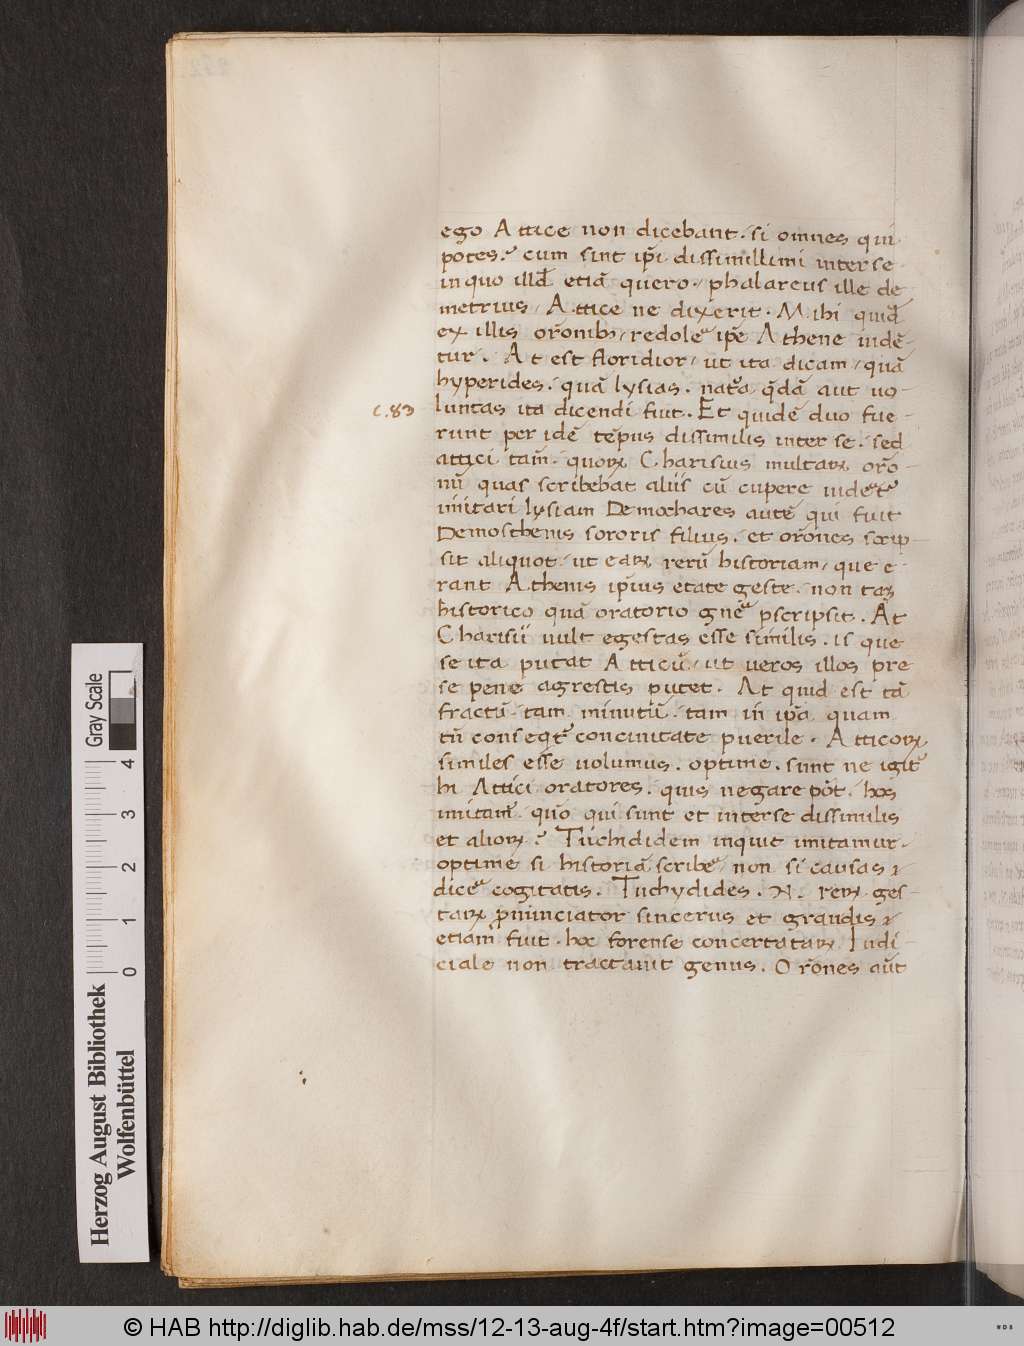 ego Attice non dicebant. si omnes qui
potes? cum sint ip̄i dissimillimi inter se
in quo illđ etiā quero, phalareus ille de
metrius, Attice ne dixerit. Mihi quiđ
ex illis orōnib, redolēt ip̄e Athene uidē-
tur. At est floridior, ut ita dicam, quā
hyperides. quā lysias. natā q̄dā aut uo-
c. 83
luntas ita dicendi fuit. Et quidē duo fue-
runt per idē tēpus dissimilis inter se. sed
attici tam̄. quoꝝ Charisius multaꝝ orō-
nū quas scribebat aliis cū cupere uidet
imitari lysiam Demochares autē qui fuit
Demosthenis sororis filius. et orōnes scrip-
sit aliquot. ut eaꝝ rerū historiam, que e-
rant Athenis ip̄ius etate geste. non tam
historico quā oratorio gñe pscripsit. At
Charisii uult egestas esse similis. is que
se ita putat Atticū, ut ueros illos pre
se pene agrestis putet. At quid est tā
fractū. tam minutū. tam in ip̄a quam
tn̄ conseq̄t concinitate puerile. Atticoꝝ
similes esse uolumus. optime. sunt ne igit
hi Attici oratores. quis negare pōt. hos
imitam̄. quō qui sunt et inter se dissimilis
et alioꝝ? Tuchididem inquit imitamur.
optime si historiā scribe, non si causas
dice cogitatis. Tuchydides. N. reꝝ ges-
taꝝ pnunciator sincerus et grandis
etiam fuit. hoc forense concertataꝝ Iudi-
ciale non tractauit genus. Orōnes aūt
Gray Scale
0 1 2 3 4
Herzog August Bibliothek
Wolfenbüttel
© HAB http://diglib.hab.de/mss/12-13-aug-4f/start.htm?image=00512